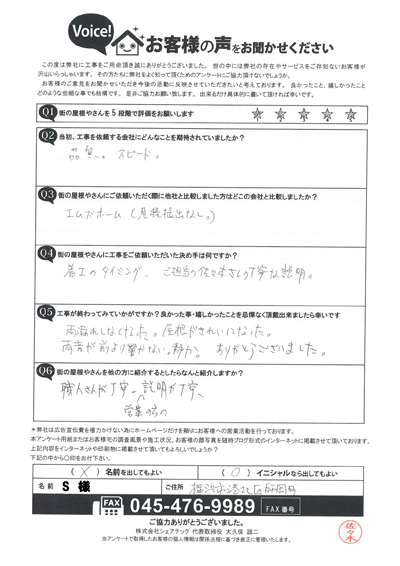 Voice!
お客様の声をお聞かせください
この度は弊社に工事をご用命頂き誠にありがとうございました。世の中には弊社の存在やサービスをご存知ないお客様が
沢山いらっしゃいます。その方たちに弊社をよく知って頂くためのアンケートにご協力頂けないでしょうか。
お客様のご意見をお聞かせいただき今後の活動に反映させていただきたいと考えております。良かったこと、嬉しかったこと
どのような些細な事でも結構です。是非ご協力お願い致します。出来るだけ具体的に書いて頂ければ幸いです。
Q1 街の屋根やさんを5段階で評価をお願いします ☆ ☆ ☆ ☆ ☆
Q2 当初、工事を依頼する会社にどんなことを期待されていましたか?
品質、スピード。
Q3 街の屋根やさんにご依頼いただく際に他社と比較しました方はどこの会社と比較しましたか?
エムズホーム(見積提出なし。)
Q4 街の屋根やさんに工事をご依頼いただいた決め手は何ですか?
着工のタイミング、ご担当の佐々木さんの丁寧な説明。
Q5 工事が終わってみていかがですか?良かった事・嬉しかったことを忌憚なく頂戴出来ましたら幸いです
雨漏れしなくなった。屋根がきれいになった。
雨音が前より響かない。静か。ありがとうございました。
Q6 街の屋根やさんを他の方に紹介するとしたらなんと紹介しますか?
職人さんが丁寧、説明が丁寧、
営業の方の
*弊社は広告宣伝費を極力かけない為にホームページだけを頼りにお客様への営業活動を行っております。
本アンケート用紙またはお客様宅の調査風景や施工状況、お客様の顔写真を随時ブログ形式のインターネットに掲載させて頂いております。
上記内容をインターネットや印刷物に掲載させて頂いてもよろしいでしょうか?
下記の中から〇印をお付け下さい。
(×)名前を出してもよい (〇)イニシャルなら出してもよい
名前 S 様 ご住所 横浜市港北区
FAX 045-476-9989 FAX番号
ご協力ありがとうございました。
株式会社シェアテック 代表取締役 大久保 誠二
当アンケートで取得したお客様の個人情報は関係法規に基づき厳正に管理いたします。
佐々木